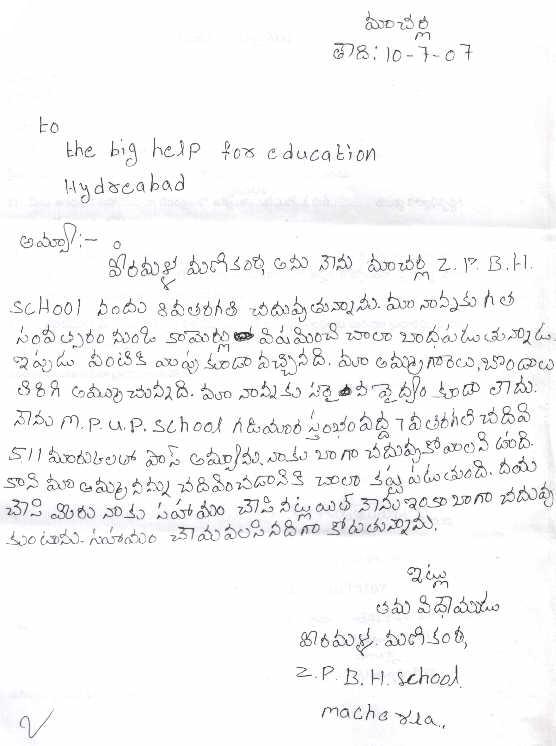 మాచర్ల
తేది: 10-7-07
to
the big help for education
Hydreabad
అమ్మా:-
వీరమళ్ళ మణికంఠ అను నేను మాచర్ల Z.P.B.H.
SCHOOL నందు 8వతరగతి చదువుతున్నాను. మా నాన్నకు గత
సంవత్సరం నుండి కామెర్లు విషమించి చాలా బాదపడుతున్నాడు.
ఇప్పుడు వంటికి వాపు కూడా వచ్చినది. మా అమ్మ గారెలు, బోండాలు
తిరిగి అమ్ముచున్నది. మా నాన్నకు సరైన వైద్యం కూడా లేదు.
నేను M.P.U.P. School గడియార స్తంభం వద్ద 7వతరగతి చదివి
511 మారుకులతో పాస్ అయ్యాను. నాకు బాగా చదువుకోవాలని ఉంది.
కాని మా అమ్మ నన్ను చదివించడానికి చాలా కష్టపడుతుంది. దయ
చేసి మీరు నాకు సహాయం చేసినట్లయితే నేను ఇంకా బాగా చదువు
కుంటాను. సహాయం చేయవలసినదిగా కోరుతున్నాను.
ఇట్లు
తమ విధేయుడు
వీరమళ్ళ మణికంఠ,
Z.P.B.H. School.
macherla.